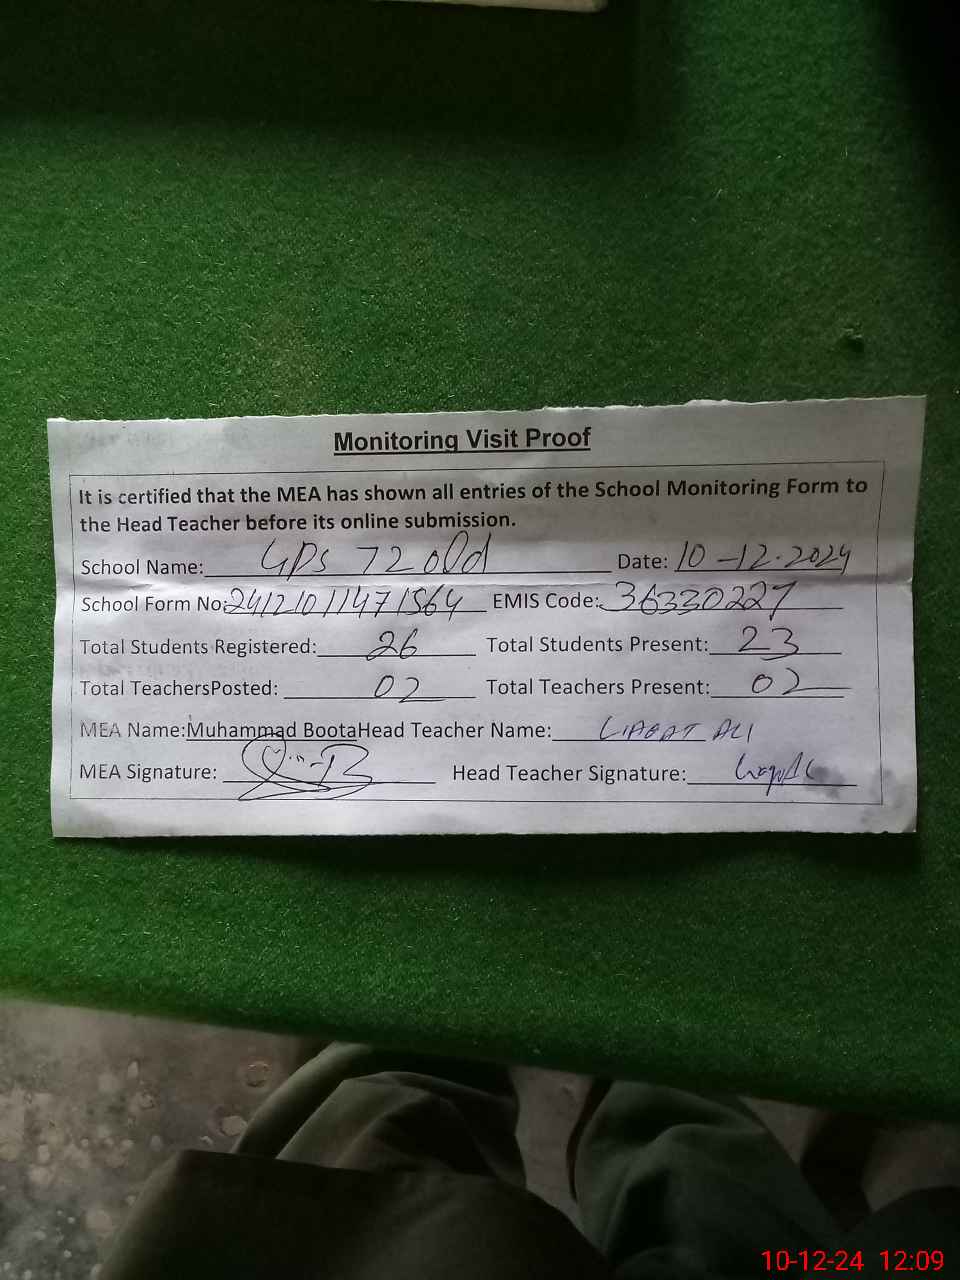 Monitoring Visit Proof
It is certified that the MEA has shown all entries of the School Monitoring Form to
the Head Teacher before its online submission.
School Name: GPS 72 old Date: 10-12-2024
School Form No: 24121011471564 EMIS Code: 36330227
Total Students Registered: 26 Total Students Present: 23
Total TeachersPosted: 02 Total Teachers Present: 02
MEA Name:Muhammad BootaHead Teacher Name: LIAQAT ALI
MEA Signature: Head Teacher Signature:
10-12-24 12:09